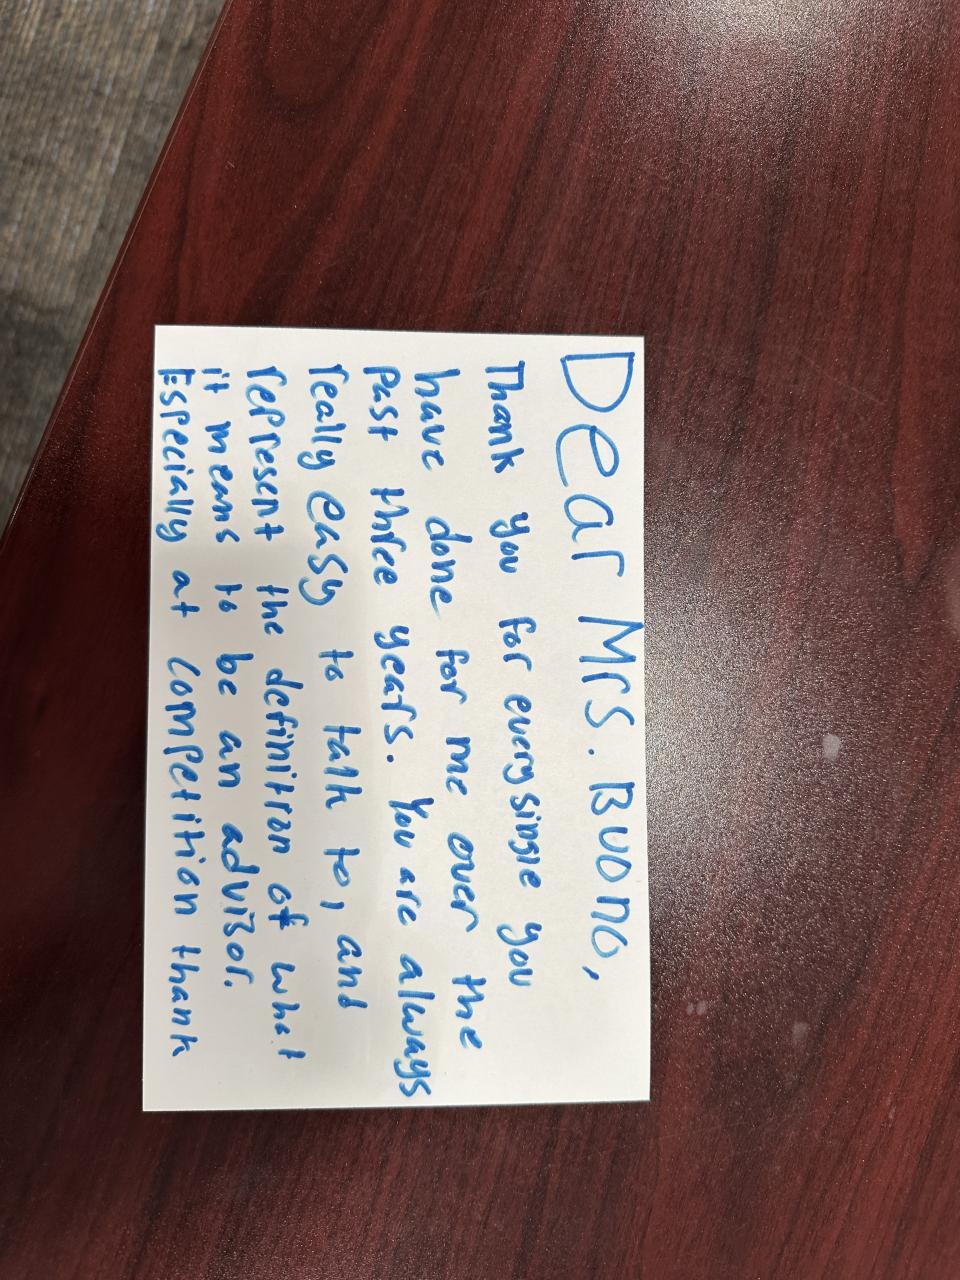 Dear Mrs. Buono,
Thank you for every single you
have done for me over the
past three years. You are always
really easy to talk to, and
represent the definition of what
it means to be an advisor.
Especially at competition thank